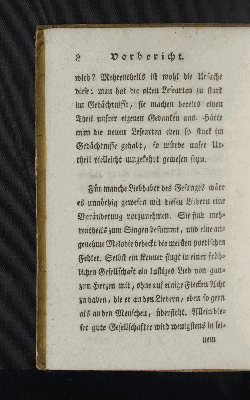 8 Vorbericht.
wird? Mehrentheils ist wohl die Ursache
diese: man hat die alten Lesearten zu stark
im Gedächtnisse, sie machen bereits einen
Theil unsrer eigenen Gedanken aus. Hätte
man die neuen Lesearten eben so stark im
Gedächtnisse gehabt, so würde unser Ur-
theil vielleicht umgekehrt gewesen seyn.
Für manche Liebhaber des Gesanges wäre
es unnöthig gewesen mit diesen Liedern eine
Veränderung vorzunehmen. Sie sind meh-
rentheils zum Singen bestimmt, und eine an-
genehme Melodie bedeckt die meisten poetischen
Fehler. Selbst ein Kenner singt in einer fröh-
lichen Gesellschaft ein lustiges Lied von gan-
zem Herzen mit, ohne auf einige Flecken Acht
zu haben, die er an den Liedern, eben so gern
als an den Menschen, übersieht. Allein die-
ser gute Gesellschafter wird wenigstens in sei-
nem